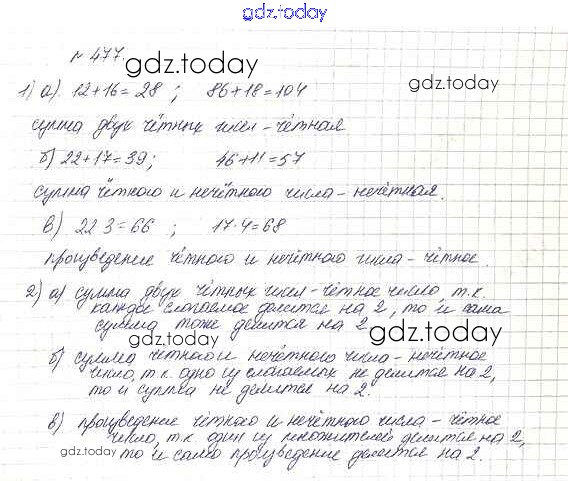 gdz.today
№ 477.
gdz.today
1) а). 12+16=28 ; 86+18=104
gdz.today
сумма двух чётных чисел - чётная
б) 22+17=39; 46+11=57
gdz.today
сумма чётного и нечётного числа - нечётная.
в) 22·3=66 ; 17·4=68
произведение чётного и нечётного числа - чётное.
2) а) сумма двух чётных чисел - чётное число, т.к.
каждое слагаемое делится на 2, то и сама
сумма тоже делится на 2
gdz.today
gdz.today
б) сумма чётного и нечётного числа - нечётное
число, т.к. одно из слагаемых не делится на 2,
то и сумма не делится на 2.
в) произведение чётного и нечётного числа - чётное
число, т.к. один из множителей делится на 2,
то и само произведение делится на 2.
gdz.today